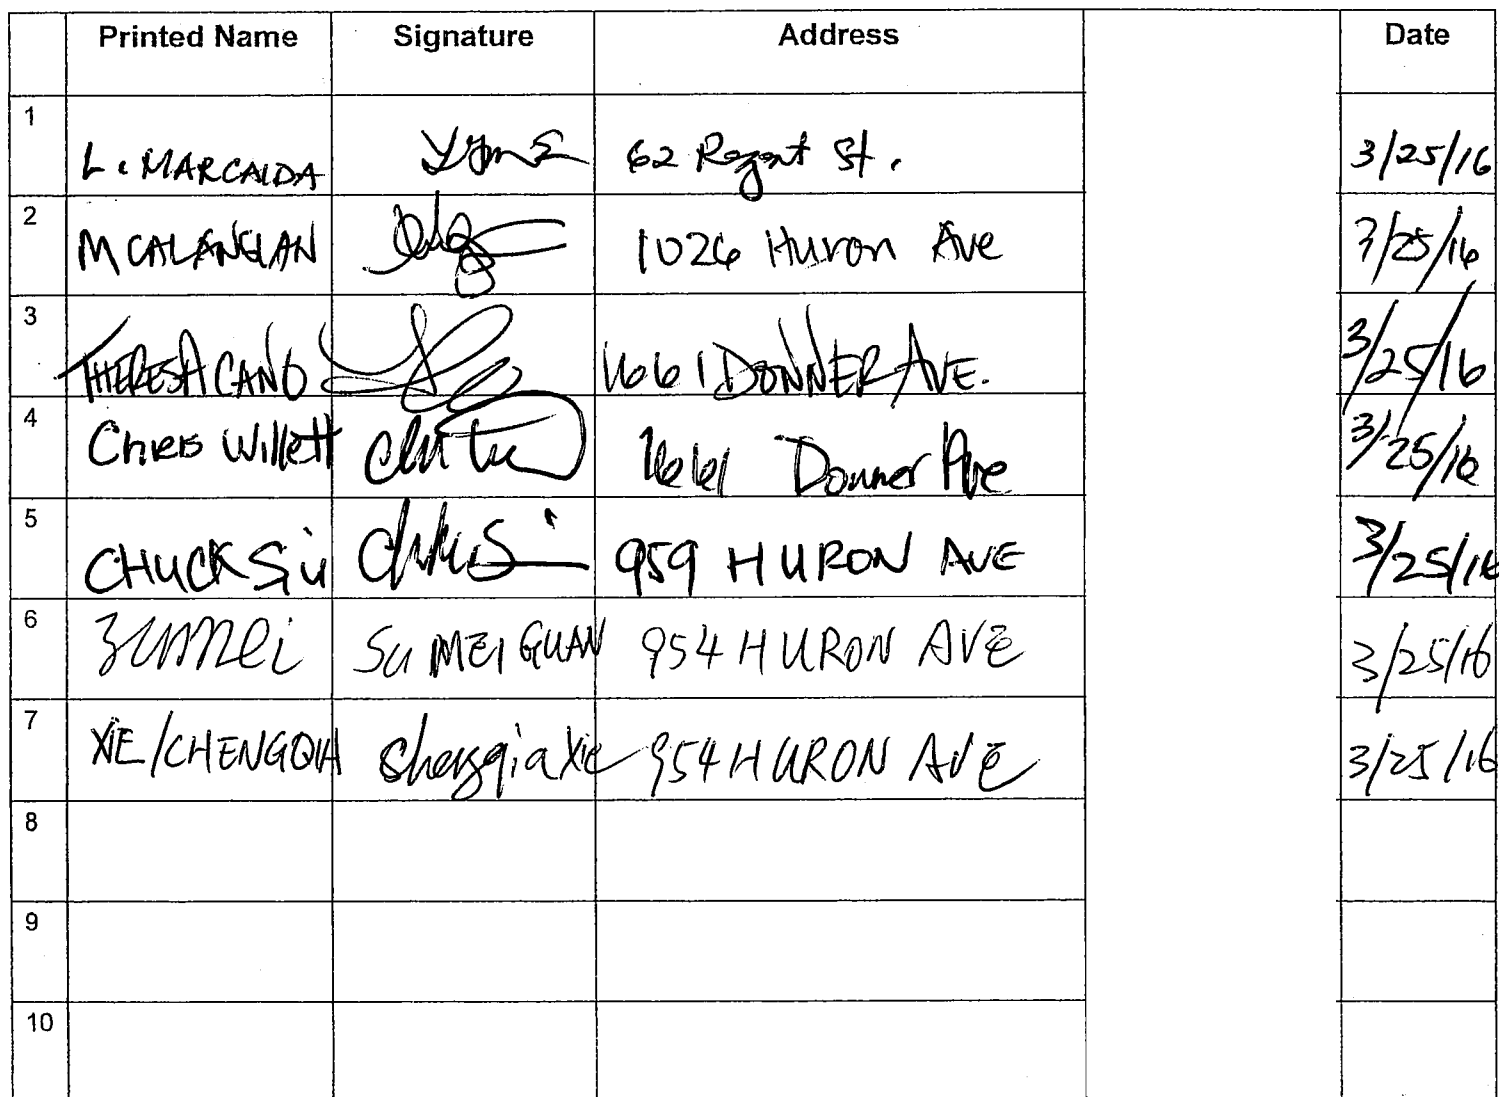 Printed Name Signature Address Date
1 L. MARCAIDA 62 Regent St. 3/25/16
2 M CALANGIAN 1026 Huron Ave 3/25/16
3 THERESA CANO 1661 DONNER AVE. 3/25/16
4 Chris Willett 1661 Donner Ave 3/25/16
5 CHUCK Siu 959 HURON AVE 3/25/16
6 Sumei SU MEI GUAN 954 HURON AVE 3/25/16
7 XIE/CHENGQIA 954 HURON AVE 3/25/16
8
9
10